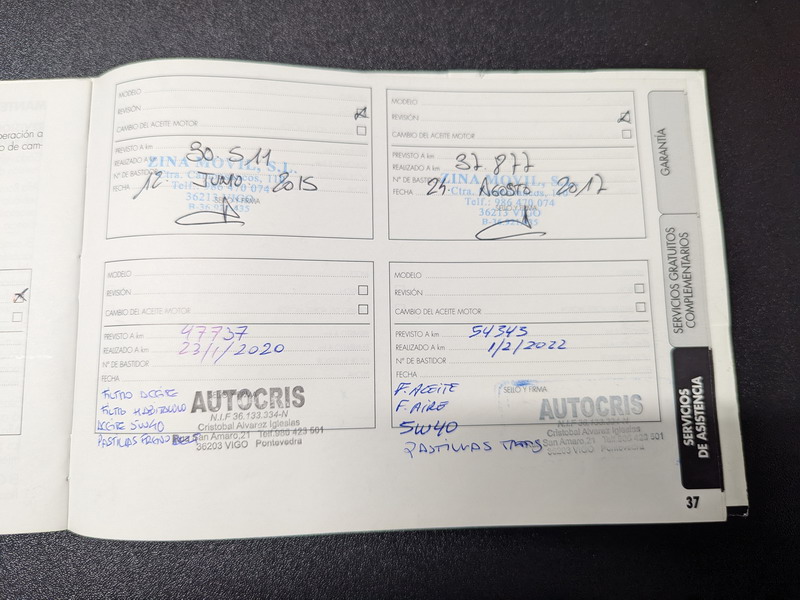 peración a
o de cam-
MODELO
REVISIÓN
CAMBIO DEL ACEITE MOTOR
PREVISTO A km
30.511
REALIZADO A km
ZINA MOVIL, S.L.
Nº DE BASTIDOR
Telf.: 986 470 074
FECHA
12 JUNIO 2015
36213 VIGO
SELLO Y FIRMA
MODELO
REVISIÓN
CAMBIO DEL ACEITE MOTOR
PREVISTO A km
37.877
REALIZADO A km
ZINA MOVIL, S.L.
Nº DE BASTIDOR
Ctra.
FECHA
24 AGOSTO 2017
Telf.: 986 470 074
SELLO Y FIRMA
36213 VIGO
MODELO
REVISIÓN
CAMBIO DEL ACEITE MOTOR
PREVISTO A km 47737
REALIZADO A km 23/1/2020
Nº DE BASTIDOR
FECHA
FILTRO ACEITE
FILTRO HABITACULO
ACEITE 5W40
PASTILLAS FRENO
AUTOCRIS
N.I.F 36.133.334-N
Cristobal Alvarez Iglesias
San Amaro,21 Telf.980 423 501
36203 VIGO Pontevedra
MODELO
REVISIÓN
CAMBIO DEL ACEITE MOTOR
PREVISTO A km 54345
REALIZADO A km 1/2/2022
Nº DE BASTIDOR
FECHA
SELLO Y FIRMA
F. ACEITE
F. AIRE
5W40
PASTILLAS TRAS
AUTOCRIS
Cristobal Alvarez Iglesias
San Amaro,21
36203 VIGO Pontevedra
GARANTÍA
SERVICIOS GRATUITOS
COMPLEMENTARIOS
SERVICIOS
DE ASISTENCIA
37